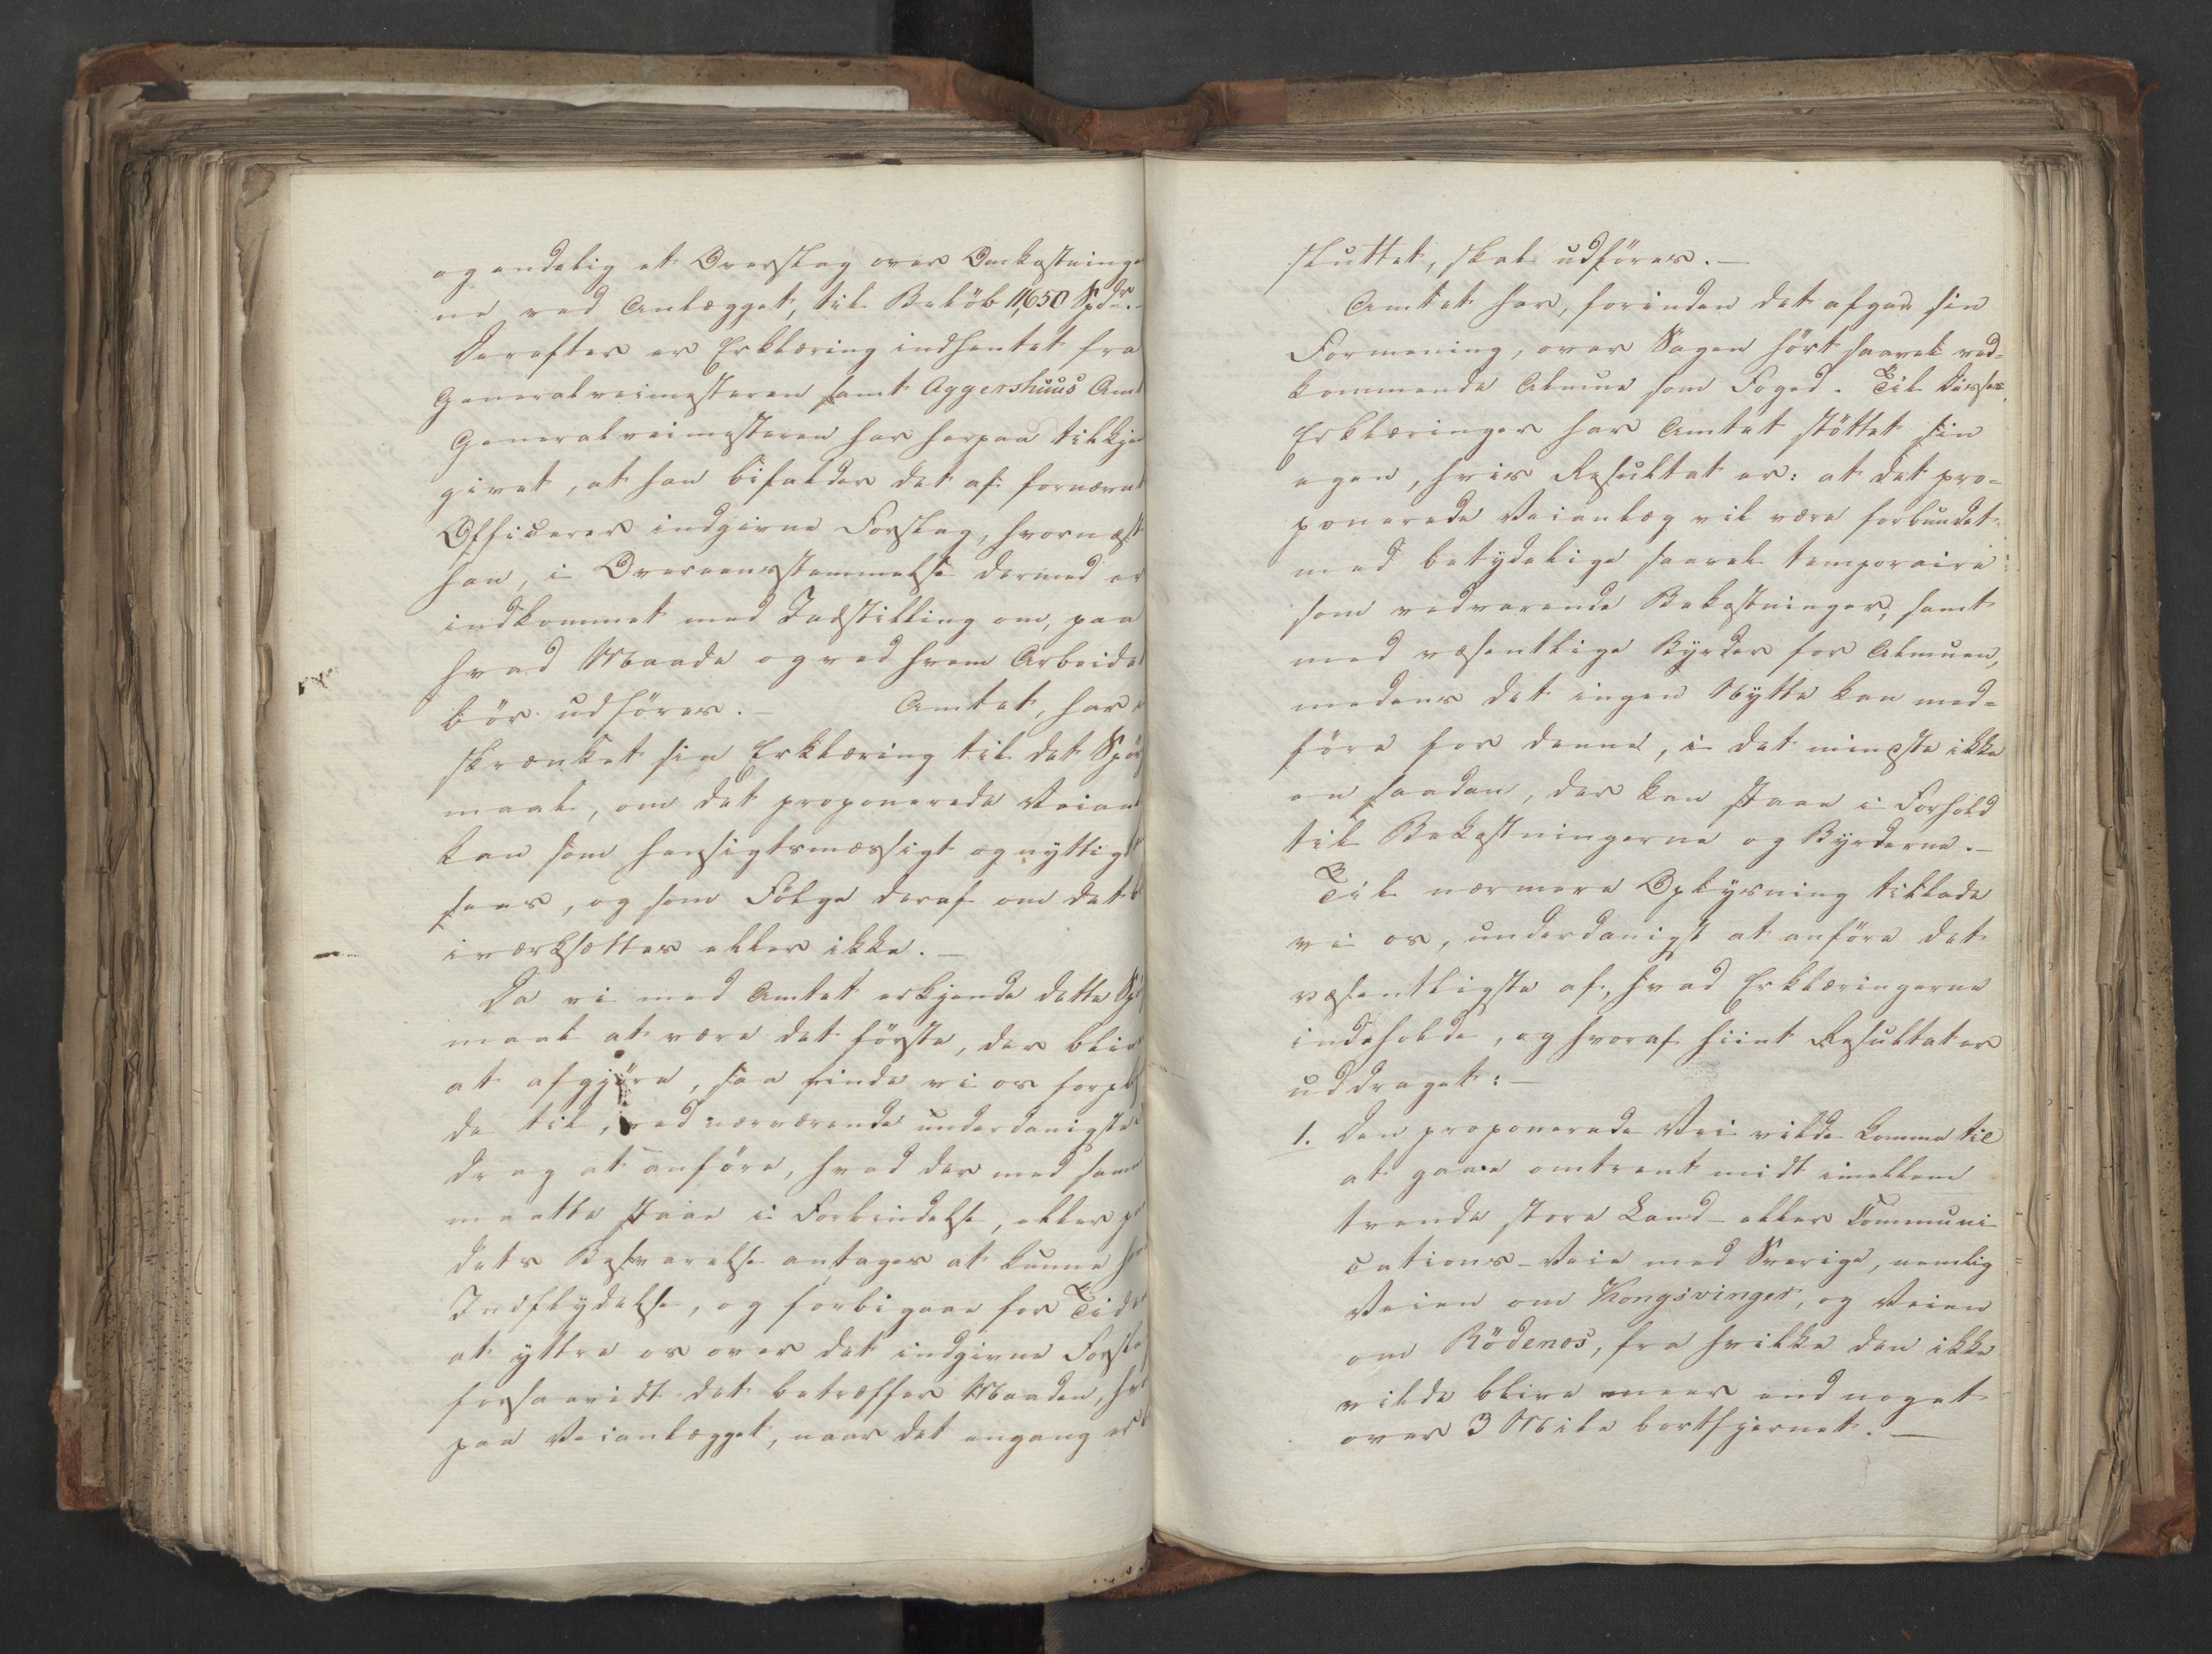 og endelig et Overslag over Omkostninge
ne ved Anlægget, til Beløb 11,650 Spdr.
Derefter er Erklæring indhentet fra
Generalveimesteren samt Aggershuus Amt
Generalveimesteren har herpaa tilkjen
givet, at han bifalder det af fornævnt
Officerer indgivne Forslag, hvornæst
han, i Overeensstemmelse dermed er
indkommet med Indstilling om, paa
hvad Maade og ved hvem Arbeidet
bör udföres. — Amtet, har
skrænket sin Erklæring til det Spör
maal, om det proponerede Veian
kan som hensigtsmæssigt og nyttigt
sees, og som Fölge deraf om det
iværksættes eller ikke. —
Da vi med Amtet erkjende dette Sp
maal at være det förste, der bliv
at afgjöre, saa finde vi os forpl
de til, ved nærværende underdanigste
drag at anföre, hvad der med sam
maatte staae i Forbindelse, eller p
dets Besvarelse antages at kunne ha
Indflydelse, og forbigaae for Tid
at yttre os over det indgivne Forsla
forsaavidt det betræffer Maaden, hv
paa Veianlægget, naar det engang er b
sluttet, skal udföres. —
Amtet har, forinden det afgav sin
Formening, over Sagen hört saavel ved=
kommende Almue som Foged. Til disses
Erklæringer har Amtet stöttet sin
egen, hvis Resultat er: at det pro=
ponerede Veianlæg vil være forbundet
med betydelige saavel temporaire
som vedvarende Bekostninger, samt
med væsentlige Byrder for Almuen,
medens det ingen Nytte kan med=
före for denne, i det mindste ikke
en saadan, der kan staae i Forhold
til Bekostningerne og Byrderne. —
Til nærmere Oplysning tillade
vi os, underdanigst at anföre det
væsentligste af, hvad Erklæringerne
indeholde, og hvoraf hiint Resultat er
uddraget: —
1. Den proponerede Vei vilde komme til
at gaae omtrent midt imellem
tvende store Land- eller Communi
cations-Veie med Sverige, nemlig
Veien om Kongsvinger, og Veien
om Rödenæs, fra hvilke den ikke
vilde blive meer end noget
over 3 Mile bortfjernet. —